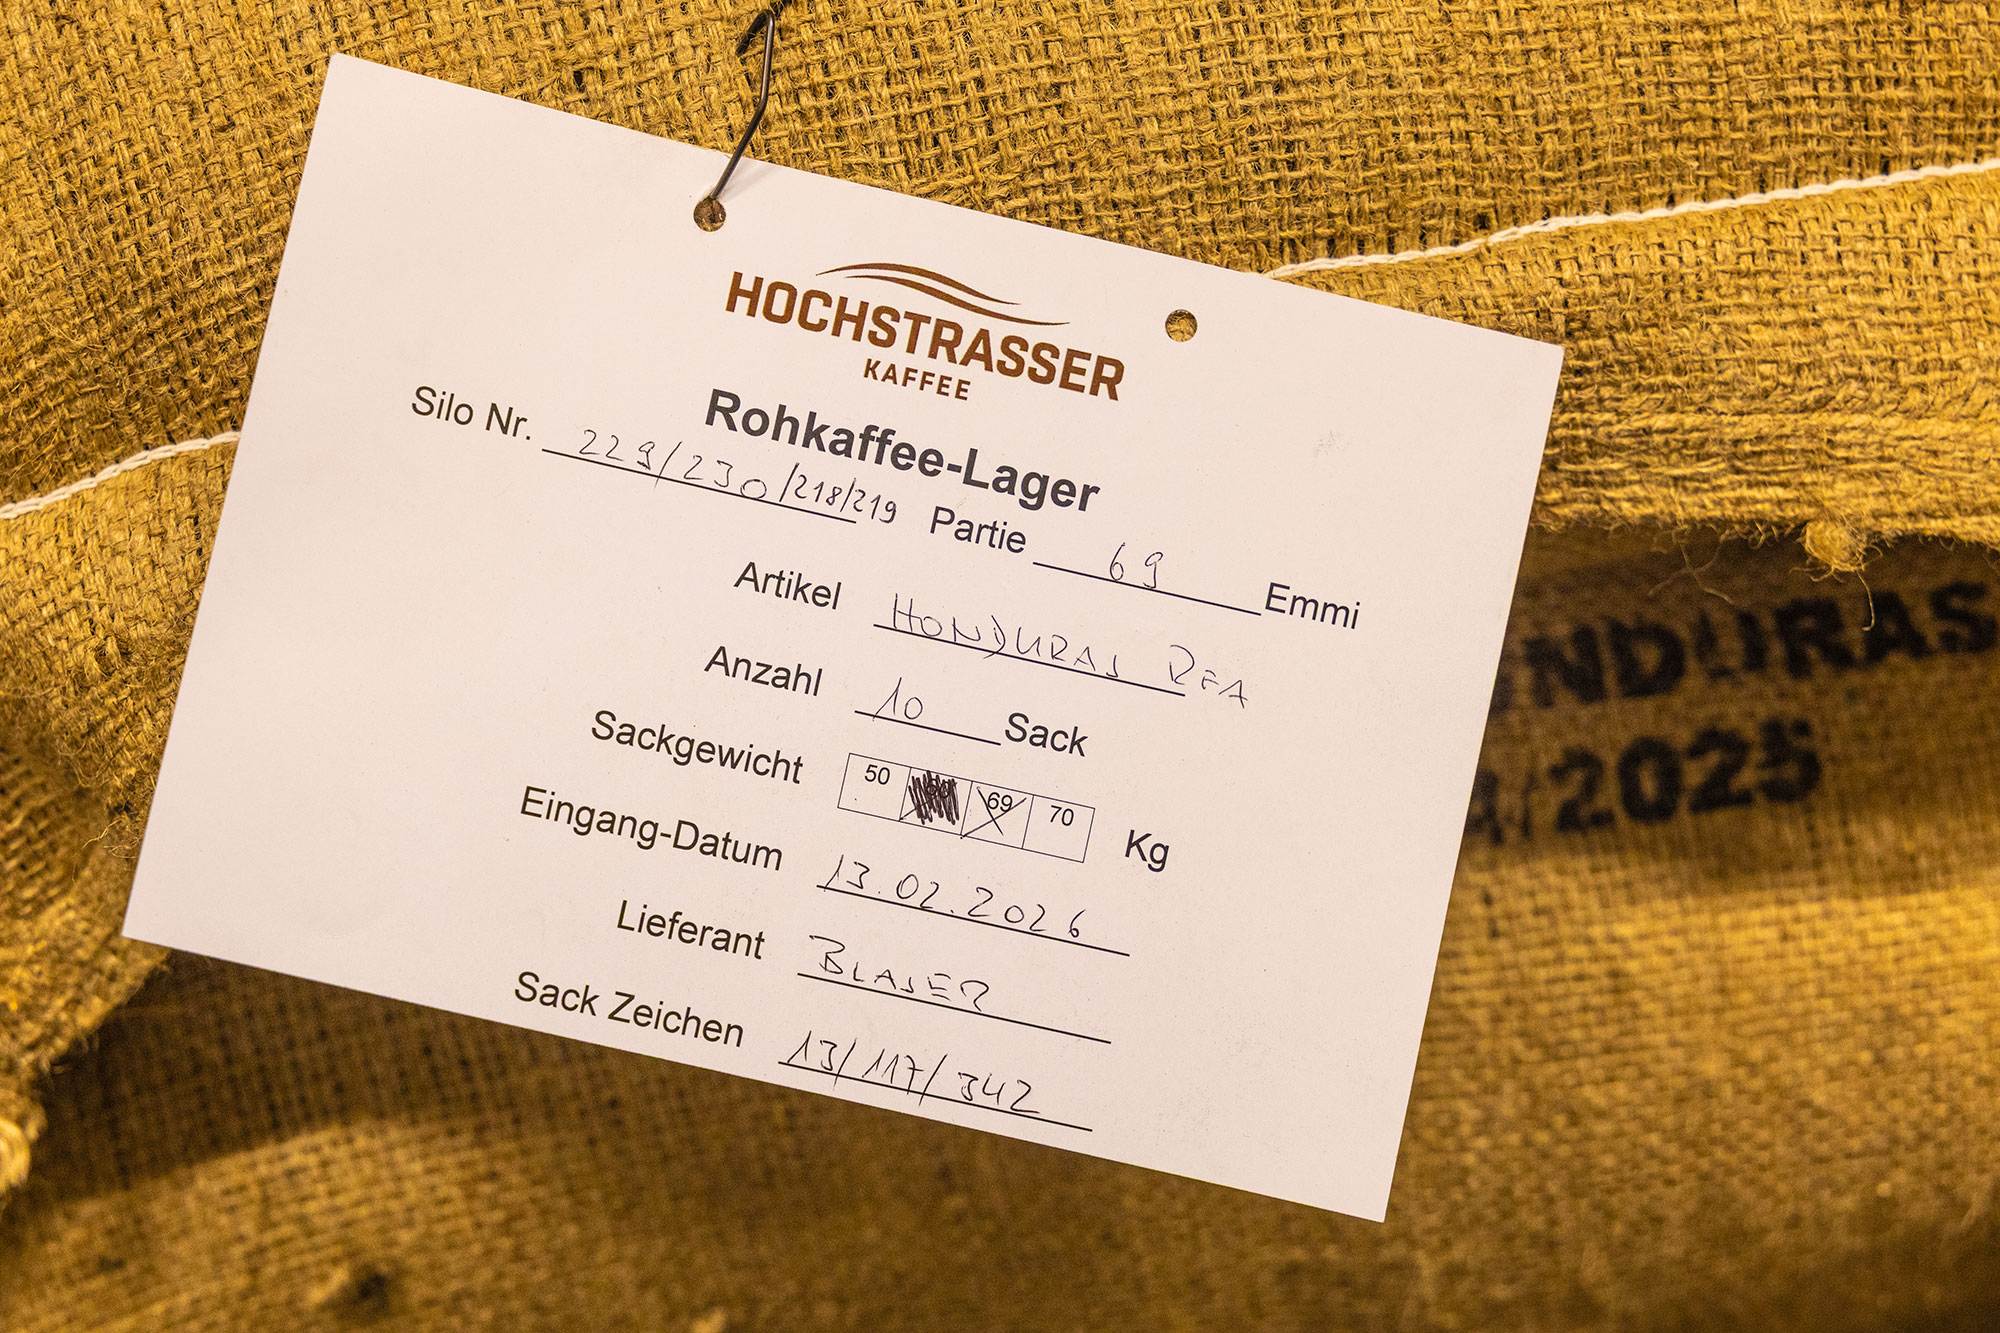 HOCHSTRASSER
KAFFEE
Rohkaffee-Lager
Silo Nr. 229/230/218/219 Partie 69 Emmi
Artikel HONDURAS RFA
Anzahl 10 Sack
Sackgewicht 50 69 70 Kg
Eingang-Datum 13.02.2026
Lieferant BLASER
Sack Zeichen 13/117/342
NDURAS
/2025